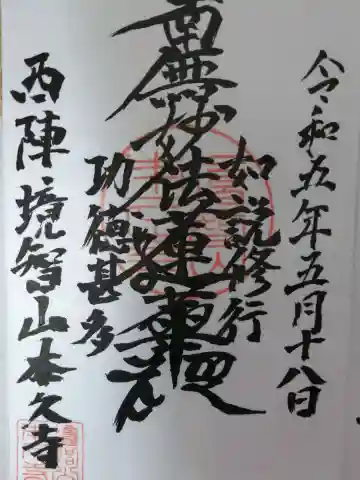 令和五年五月十八日
如説修行
南無妙法蓮華経
功徳甚多
西陣 境智山本久寺